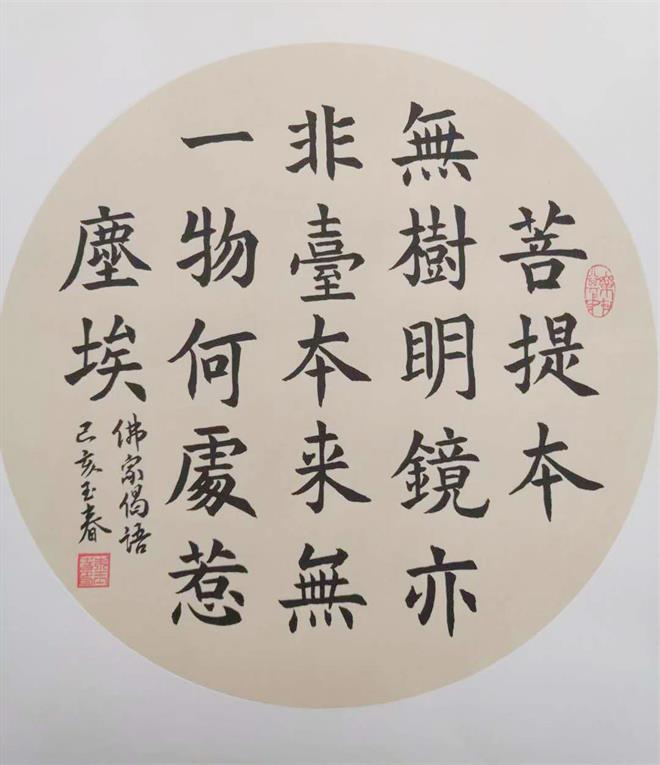 菩提本
無樹明鏡亦
非臺本来無
一物何處惹
塵埃
佛家偈语
己亥玉春